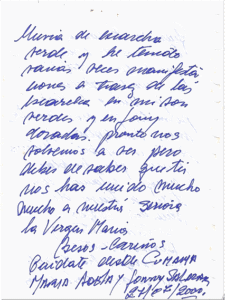 Maria de marcha
verde y he tenido
varias veces manifesta
ciones a traves de las
en mi son
verdes y en
doradas. pronto nos
volvemos a ver pero
debes de saber que tu
nos has unido mucho
mucho a nuestra señora
la Vergen Maria
Besos - Cariños
Cuidate desde Cumana
Maria Adela y Jonny
27/07/2002